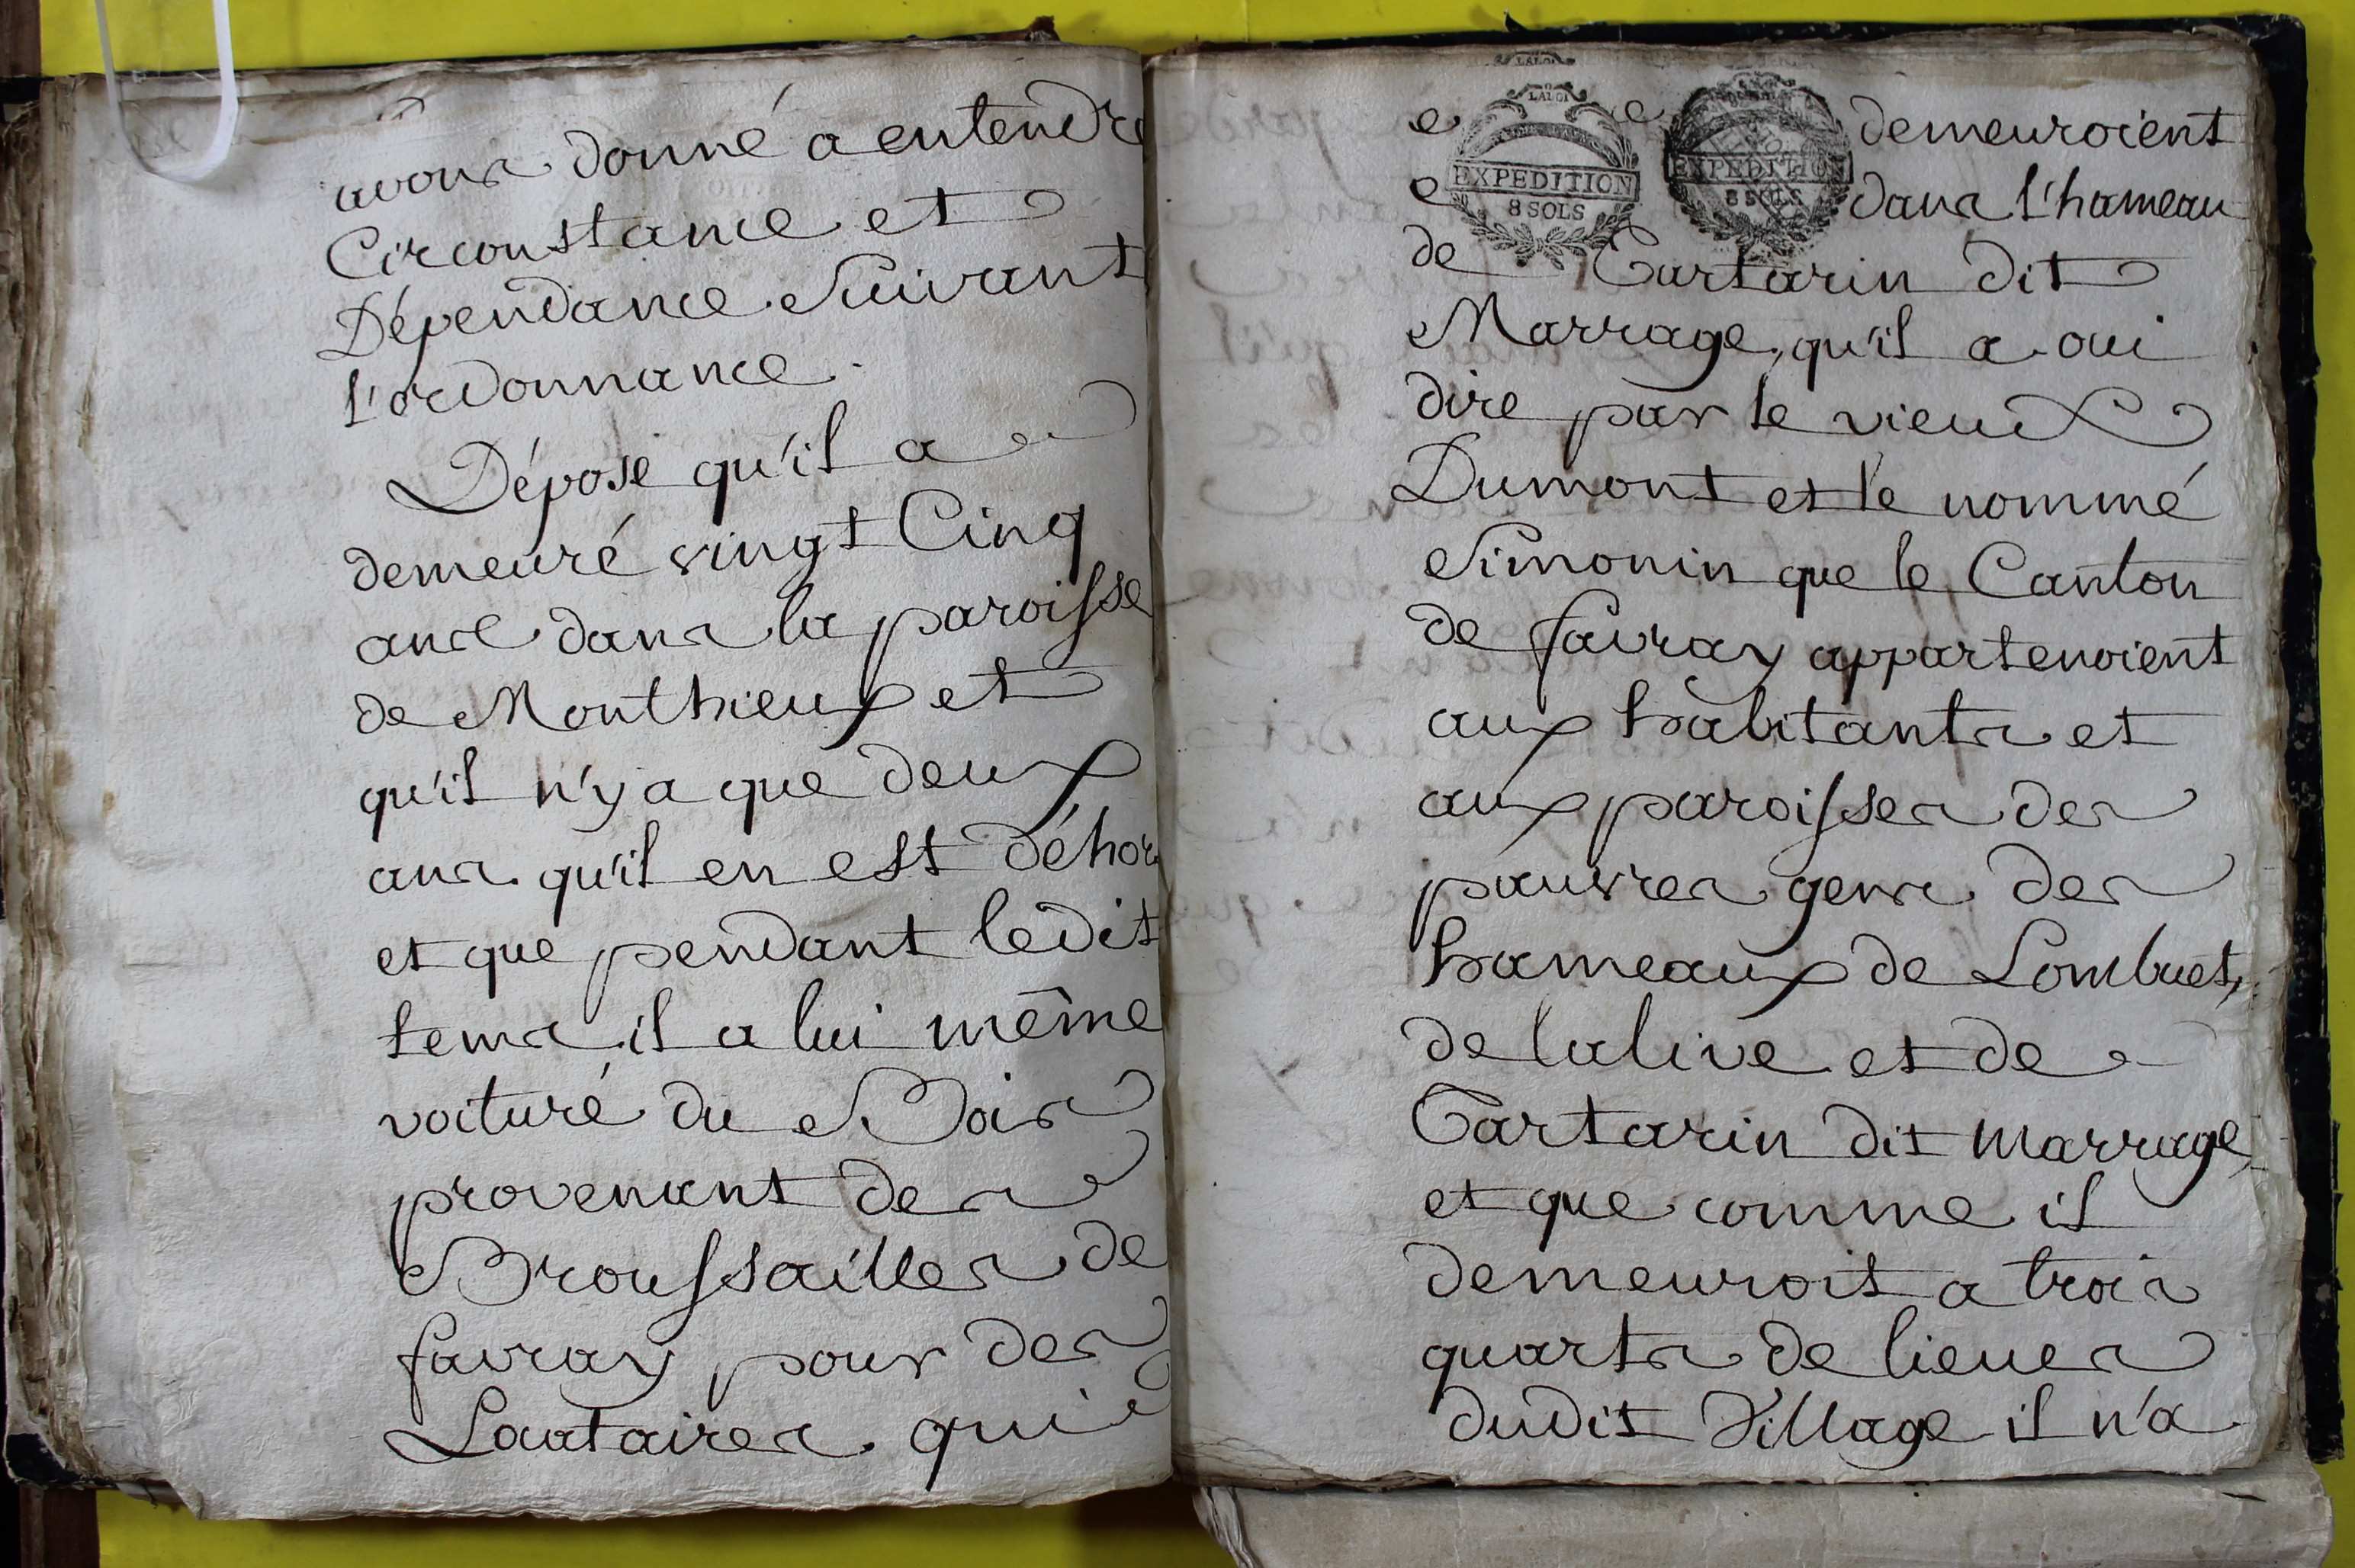 avons donné a entendre
Circonstance et
Dépendance Suivant
l'ordonnance.
Dépose qu'il a
demeuré vingt Cinq
ans dans la paroisse
de Monthieux et
qu'il n'y a que deux
ans qu'il en est déhors
et que pendant ledit
tems il a lui même
voituré du Bois
provenant des
Broussailles de
favray pour des
qui
LA LOI
LA LOI
EXPEDITION
8 SOLS
EXPEDITION
8 SOLS
demeuroient
dans l'hameau
de Tartarin dit
Marrage, qu'il a oui
dire par le vieux
Dumont et le nommé
Simonin que le Canton
de favray appartenoient
aux habitants et
aux paroisses des
pauvres gens des
hameaux de Lombuet,
de lalive et de
Tartarin dit Marrage,
et que comme il
demeuroit a trois
quarts de lieues
dudit Village il n'a